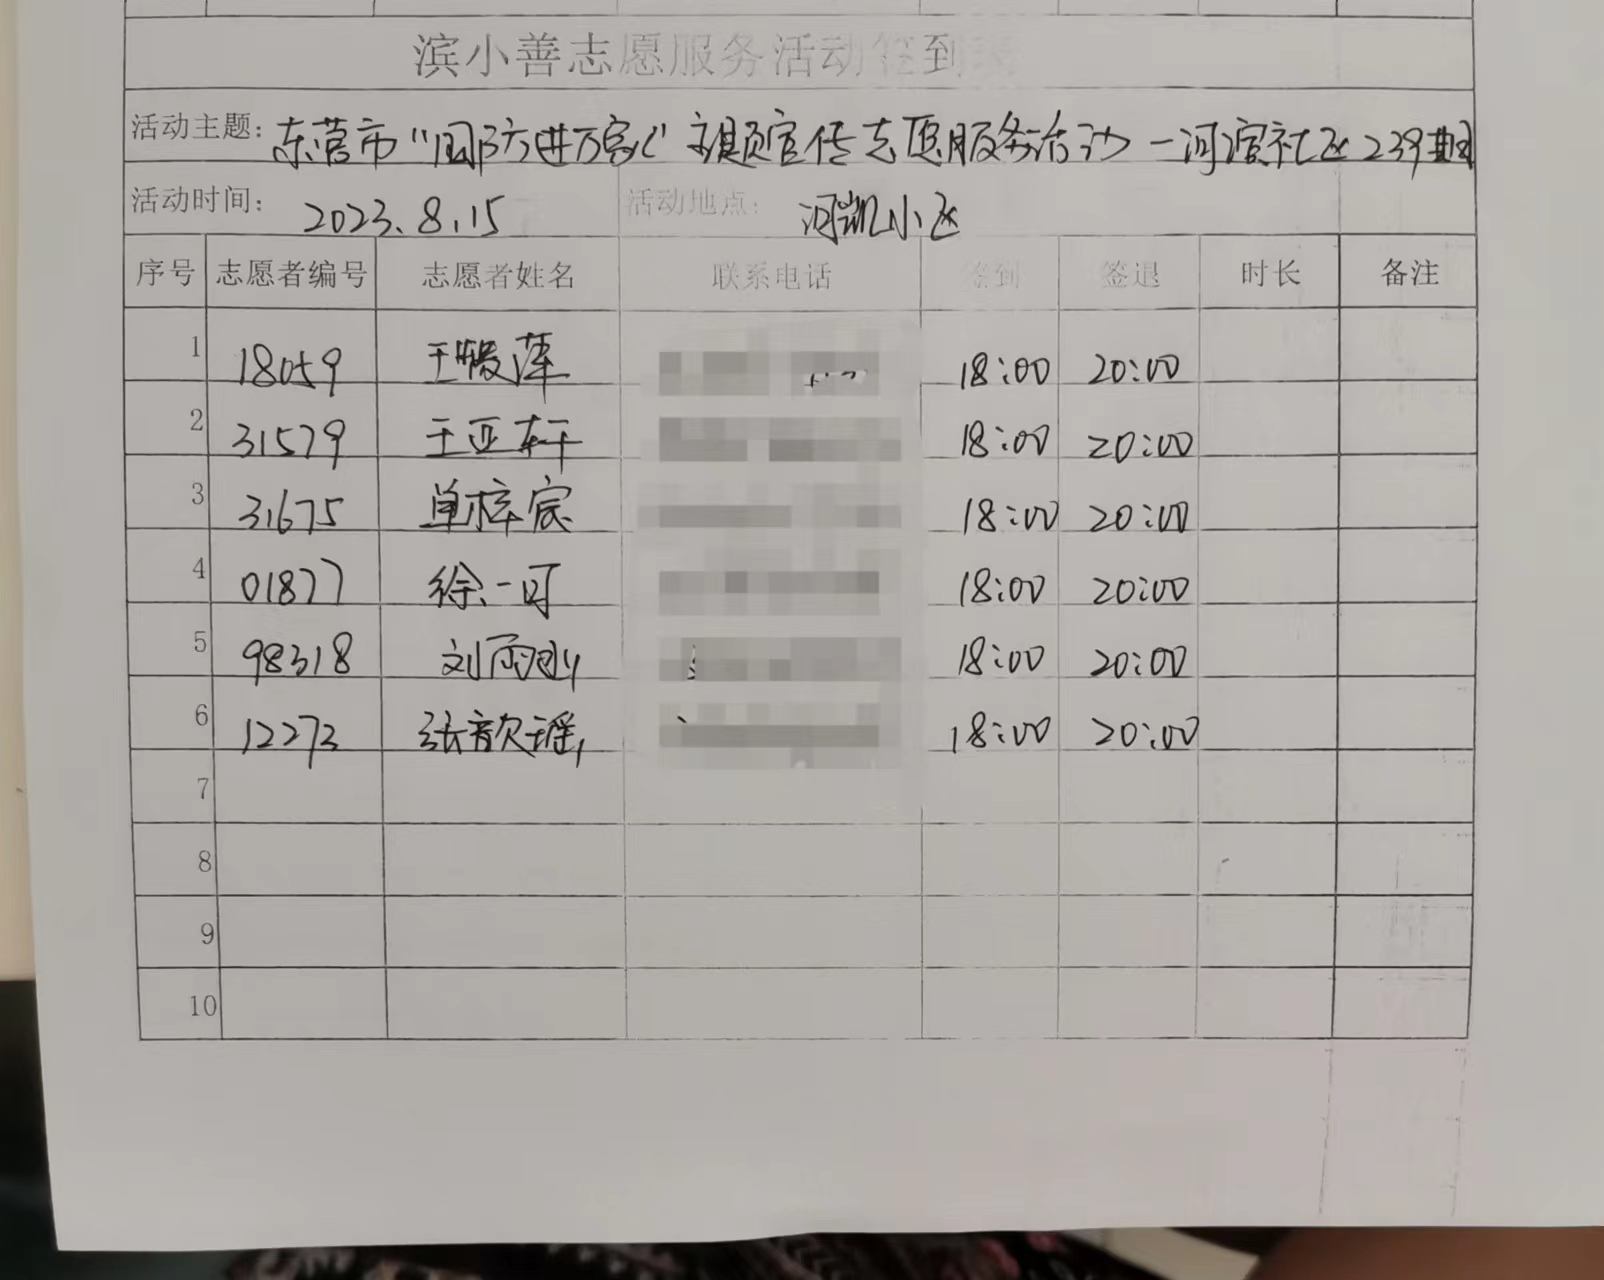 滨小善志愿服务活动签到表
活动主题: 东营市"国防进万家"主题宣传志愿服务活动-河滨社区239期
活动时间: 2023.8.15 活动地点: 河凯小区
序号 志愿者编号 志愿者姓名 联系电话 签到 签退 时长 备注
1 18059 王 萍 18:00 20:00
2 31579 王亚轩 18:00 20:00
3 31675 单梓宸 18:00 20:00
4 01877 徐一可 18:00 20:00
5 98318 刘雨 18:00 20:00
6 12273 张歆瑶 18:00 20:00
7
8
9
10